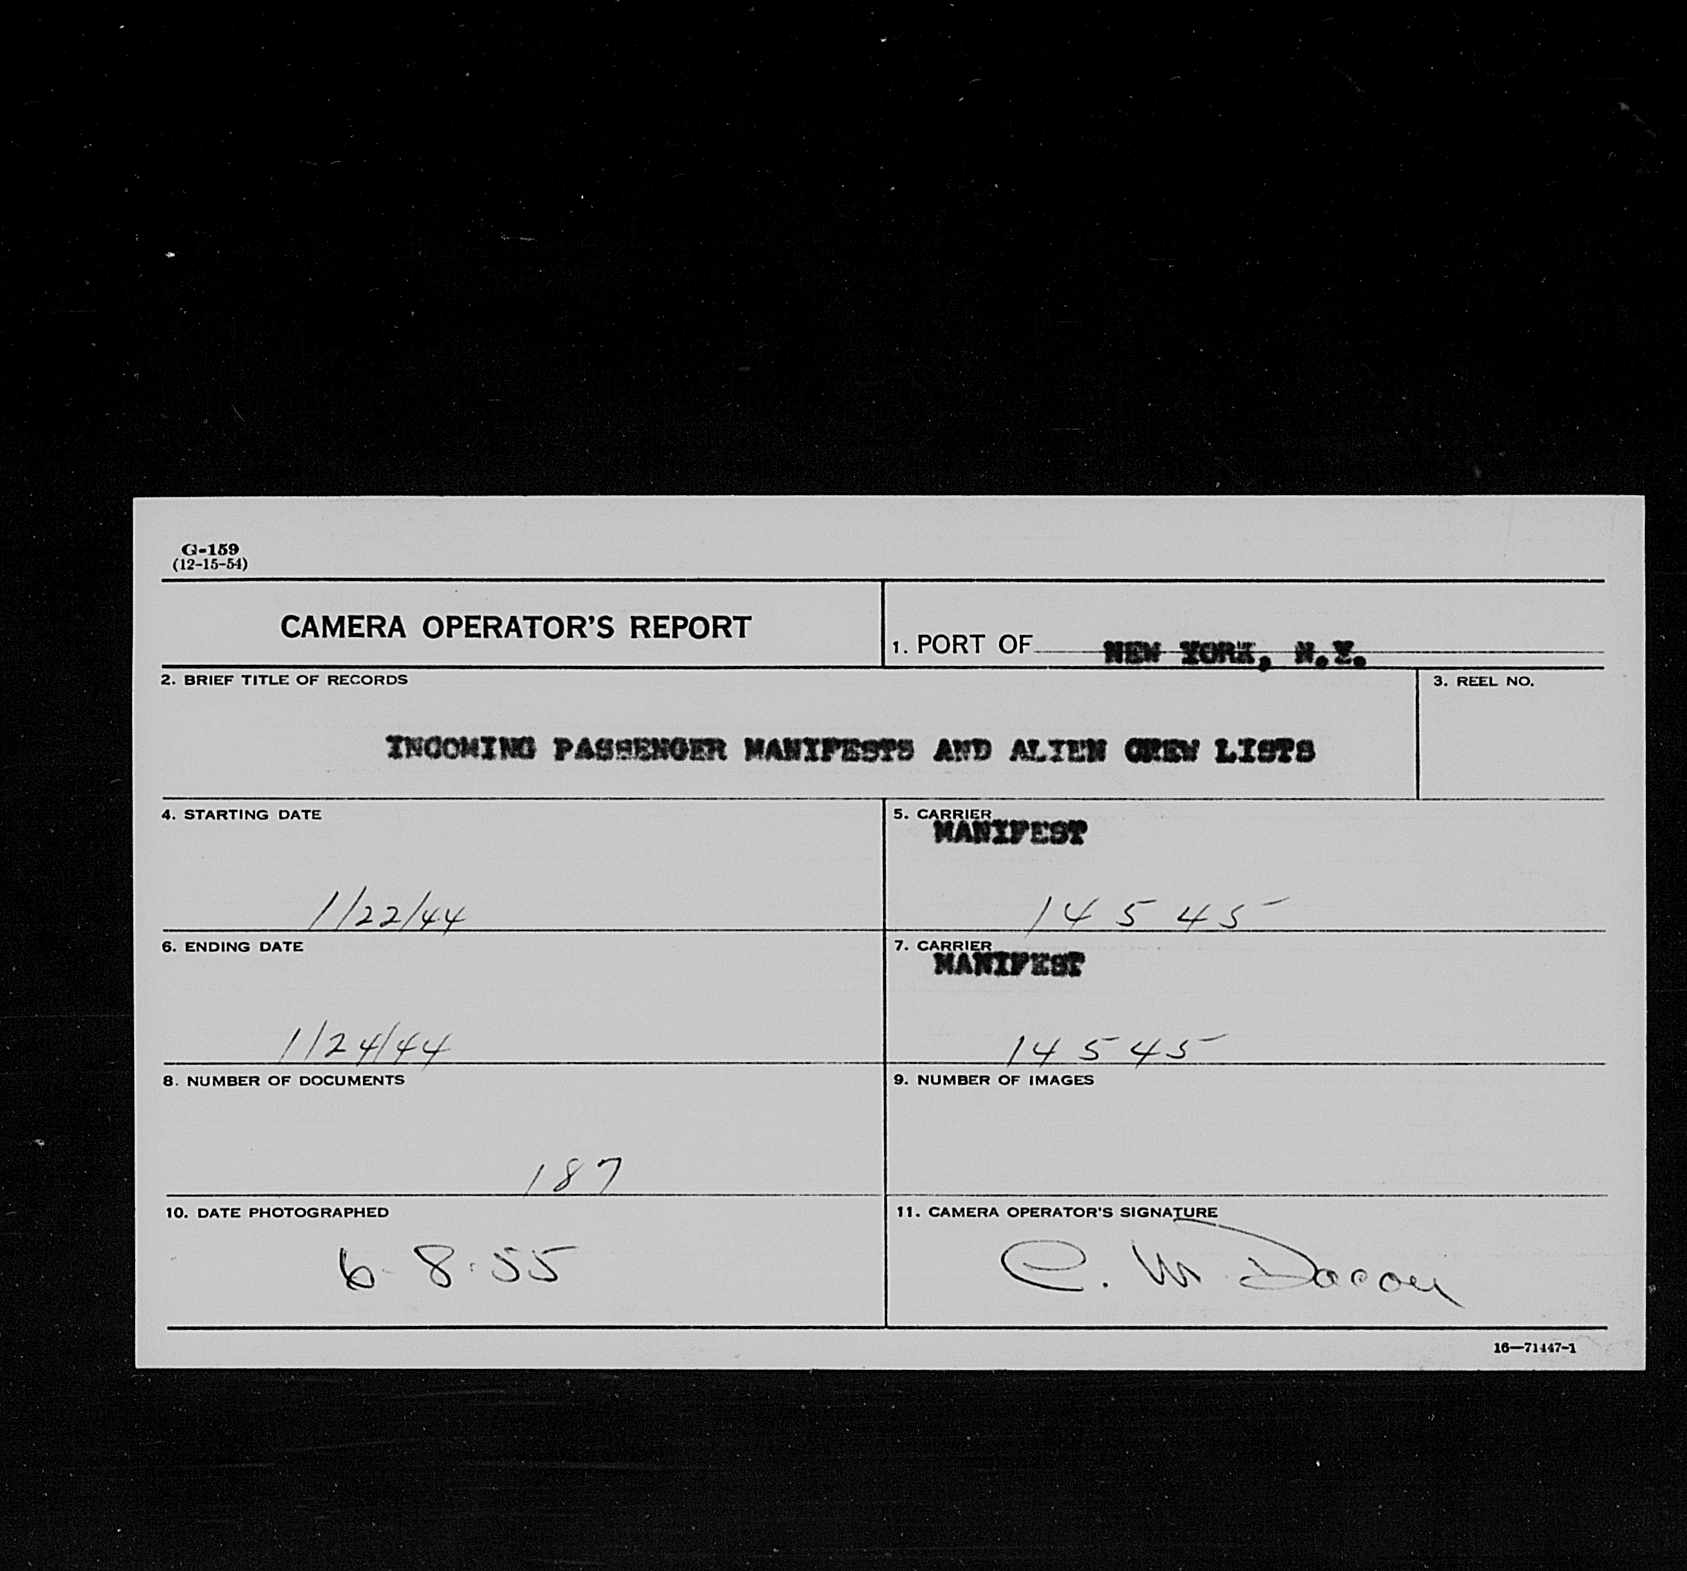 G-159
(12-15-54)
CAMERA OPERATOR'S REPORT
1. PORT OF NEW YORK, N.Y.
2. BRIEF TITLE OF RECORDS
3. REEL NO.
INCOMING PASSENGER MANIFESTS AND ALIEN CREW LISTS
4. STARTING DATE
5. CARRIER
MANIFEST
1/22/44
14545
6. ENDING DATE
7. CARRIER
MANIFEST
1/24/44
14545
8. NUMBER OF DOCUMENTS
9. NUMBER OF IMAGES
187
10. DATE PHOTOGRAPHED
11. CAMERA OPERATOR'S SIGNATURE
6-8-55
C. M.
16—71447-1